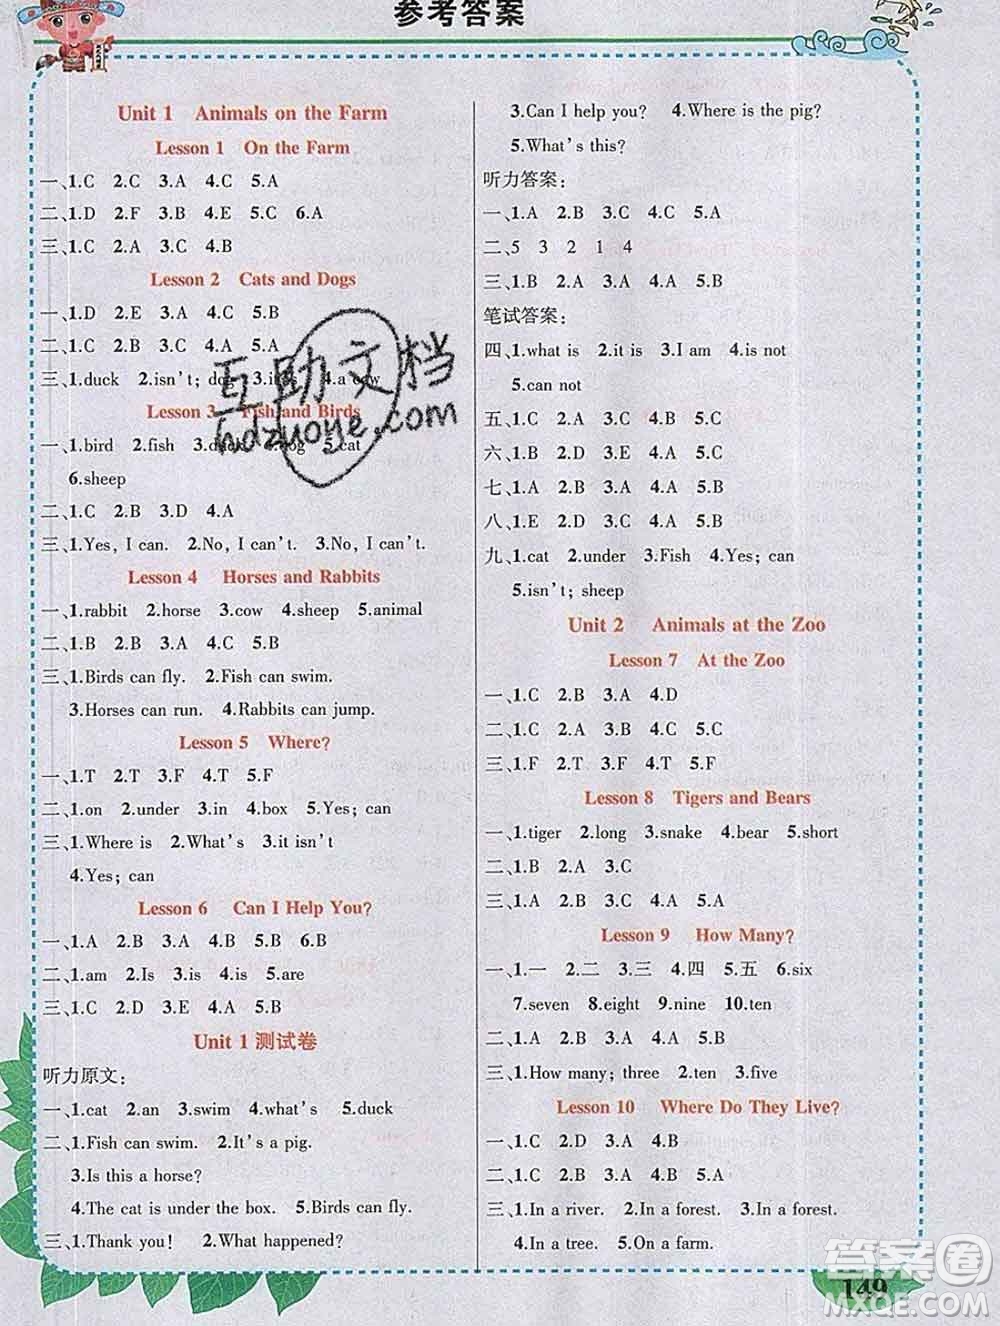 参考答案
Unit 1 Animals on the Farm
Lesson 1 On the Farm
一、1.C 2.C 3.A 4.C 5.A
二、1.D 2.F 3.B 4.E 5.C 6.A
三、1.C 2.A 3.C 4.B
Lesson 2 Cats and Dogs
一、1.D 2.E 3.A 4.C 5.B
二、1.C 2.B 3.A 4.A 5.A
三、1.duck 2.isn't; dog 3.it is 4.a cow
Lesson 3 Fish and Birds
一、1.bird 2.fish 3.duck 4.dog 5.cat
6.sheep
二、1.C 2.B 3.D 4.A
三、1.Yes, I can. 2.No, I can't. 3.No, I can't.
Lesson 4 Horses and Rabbits
一、1.rabbit 2.horse 3.cow 4.sheep 5.animal
二、1.B 2.B 3.A 4.C 5.B
三、1.Birds can fly. 2.Fish can swim.
3.Horses can run. 4.Rabbits can jump.
Lesson 5 Where?
一、1.T 2.T 3.F 4.T 5.F
二、1.on 2.under 3.in 4.box 5.Yes; can
三、1.Where is 2.What's 3.it isn't
4.Yes; can
Lesson 6 Can I Help You?
一、1.A 2.B 3.A 4.B 5.B 6.B
二、1.am 2.Is 3.is 4.is 5.are
三、1.C 2.D 3.E 4.A 5.B
Unit 1 测试卷
听力原文:
一、1.cat 2.an 3.swim 4.what's 5.duck
二、1.Fish can swim. 2.It's a pig.
3.Is this a horse?
4.The cat is under the box. 5.Birds can fly.
三、1.Thank you! 2.What happened?
3.Can I help you? 4.Where is the pig?
5.What's this?
听力答案:
一、1.A 2.B 3.C 4.C 5.A
二、5 3 2 1 4
三、1.B 2.B 3.A 4.A 5.B
笔试答案:
四、1.what is 2.it is 3.I am 4.is not
5.can not
五、1.C 2.B 3.A 4.B 5.C
六、1.B 2.D 3.E 4.C 5.A
七、1.A 2.B 3.A 4.B 5.B
八、1.E 2.D 3.C 4.B 5.A
九、1.cat 2.under 3.Fish 4.Yes; can
5.isn't; sheep
Unit 2 Animals at the Zoo
Lesson 7 At the Zoo
一、1.C 2.B 3.A 4.D
二、1.C 2.A 3.B 4.C 5.C
三、1.F 2.T 3.F 4.T 5.F
Lesson 8 Tigers and Bears
一、1.tiger 2.long 3.snake 4.bear 5.short
二、1.B 2.A 3.C
三、1.C 2.B 3.A 4.B 5.A
Lesson 9 How Many?
一、1.一 2.二 3.三 4.四 5.五 6.six
7.seven 8.eight 9.nine 10.ten
二、1.A 2.B 3.A 4.B 5.B
三、1.How many; three 2.ten 3.five
Lesson 10 Where Do They Live?
一、1.C 2.D 3.A 4.B
二、1.C 2.A 3.A 4.B 5.A
三、1.In a river. 2.In a forest. 3.In a forest.
4.In a tree. 5.On a farm.
149
互助文档
hdzuoye.com
答案圈
MXQE.COM